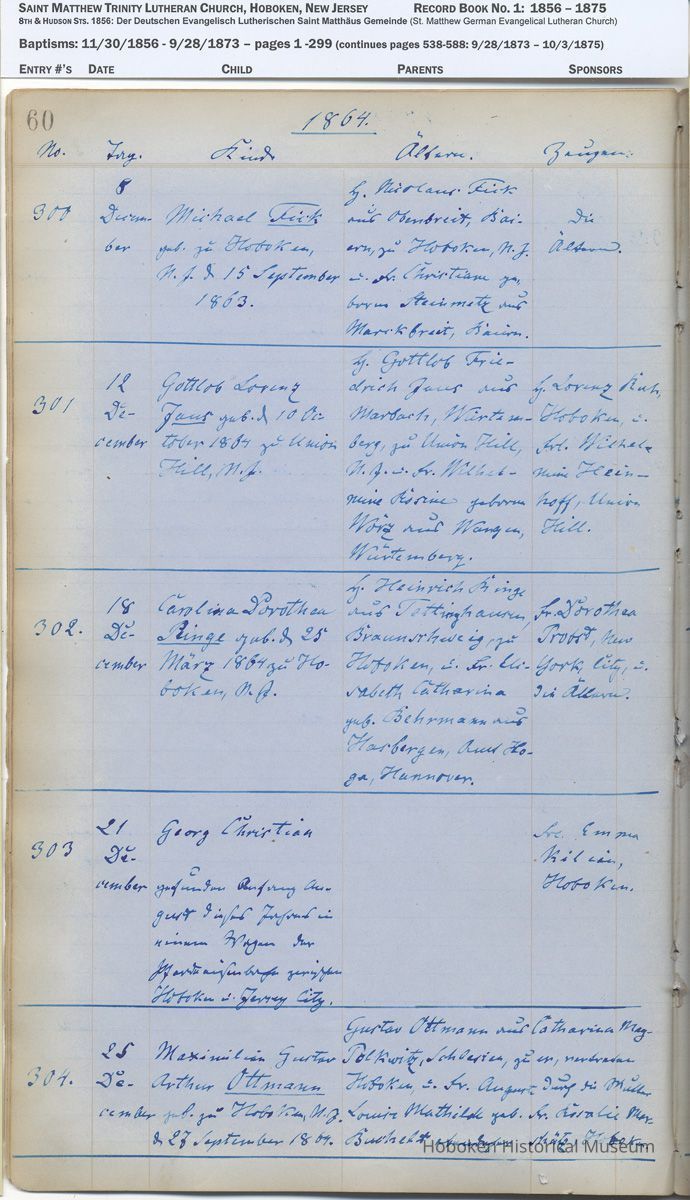 SAINT MATTHEW TRINITY LUTHERAN CHURCH, HOBOKEN, NEW JERSEY RECORD BOOK NO. 1: 1856 – 1875
8TH & HUDSON STS. 1856: Der Deutschen Evangelisch Lutherischen Saint Matthäus Gemeinde (St. Matthew German Evangelical Lutheran Church)
Baptisms: 11/30/1856 - 9/28/1873 – pages 1 -299 (continues pages 538-588: 9/28/1873 – 10/3/1875)
ENTRY #'S DATE CHILD PARENTS SPONSORS
60
1864.
No. Tag. Kind Ältern. Zeugen.
300
8
Decem-
ber
Michael Fick
geb. zu Hoboken,
N. J. d 15 September
1863.
H. Nicolaus Fick
aus Obenbreit, Bai-
ern, zu Hoboken, N. J.
u. Fr. Christiane ge-
borne Steinmetz aus
Marckbreit, Baiern.
die
Ältern.
301
12
De-
cember
Gottlob Lorenz
Jaus geb. d 10 Oc-
tober 1864 zu Union
Hill, N. J.
H. Gottlob Frie-
drich Jaus aus
Marbach, Würtem-
berg, zu Union Hill,
N. J. u. Fr. Wilhel-
mine Rosine geborne
Wörz aus Wangen,
Würtemberg.
H. Lorenz
Hoboken, u.
Frl. Wilhel-
mine Hein-
hoff, Union
Hill.
302.
18
De-
cember
Carolina Dorothea
Ringe geb. d 25
März 1864 zu Ho-
boken, N. J.
H. Heinrich Ringe
aus
Braunschweig, zu
Hoboken, u. Fr. Eli-
sabeth Catharina
geb. Behrmann aus
Hasbergen, Amt Ho-
ya, Hannover.
Fr. Dorothea
Probst, New
York, City, u.
die Ältern.
303
21
De-
cember
Georg Christian
gefunden Anfang Au-
gust dieses Jahres in
einem Wagen der
Pferdeeisenbahn zwischen
Hoboken u. Jersey City.
Frl. Emma
Kilian,
Hoboken.
304.
25
De-
cember
Maximilian Gustav
Arthur Ottmann
geb. zu Hoboken, N. J.
d 27 September 1864.
Gustav Ottmann aus
Polkwitz, Schlesien, zu
Hoboken, u. Fr. Auguste
Louise Mathilde geb.
Catharina May-
er, vertreten
durch die Mutter
Fr. Rosalie
Hoboken Historical Museum